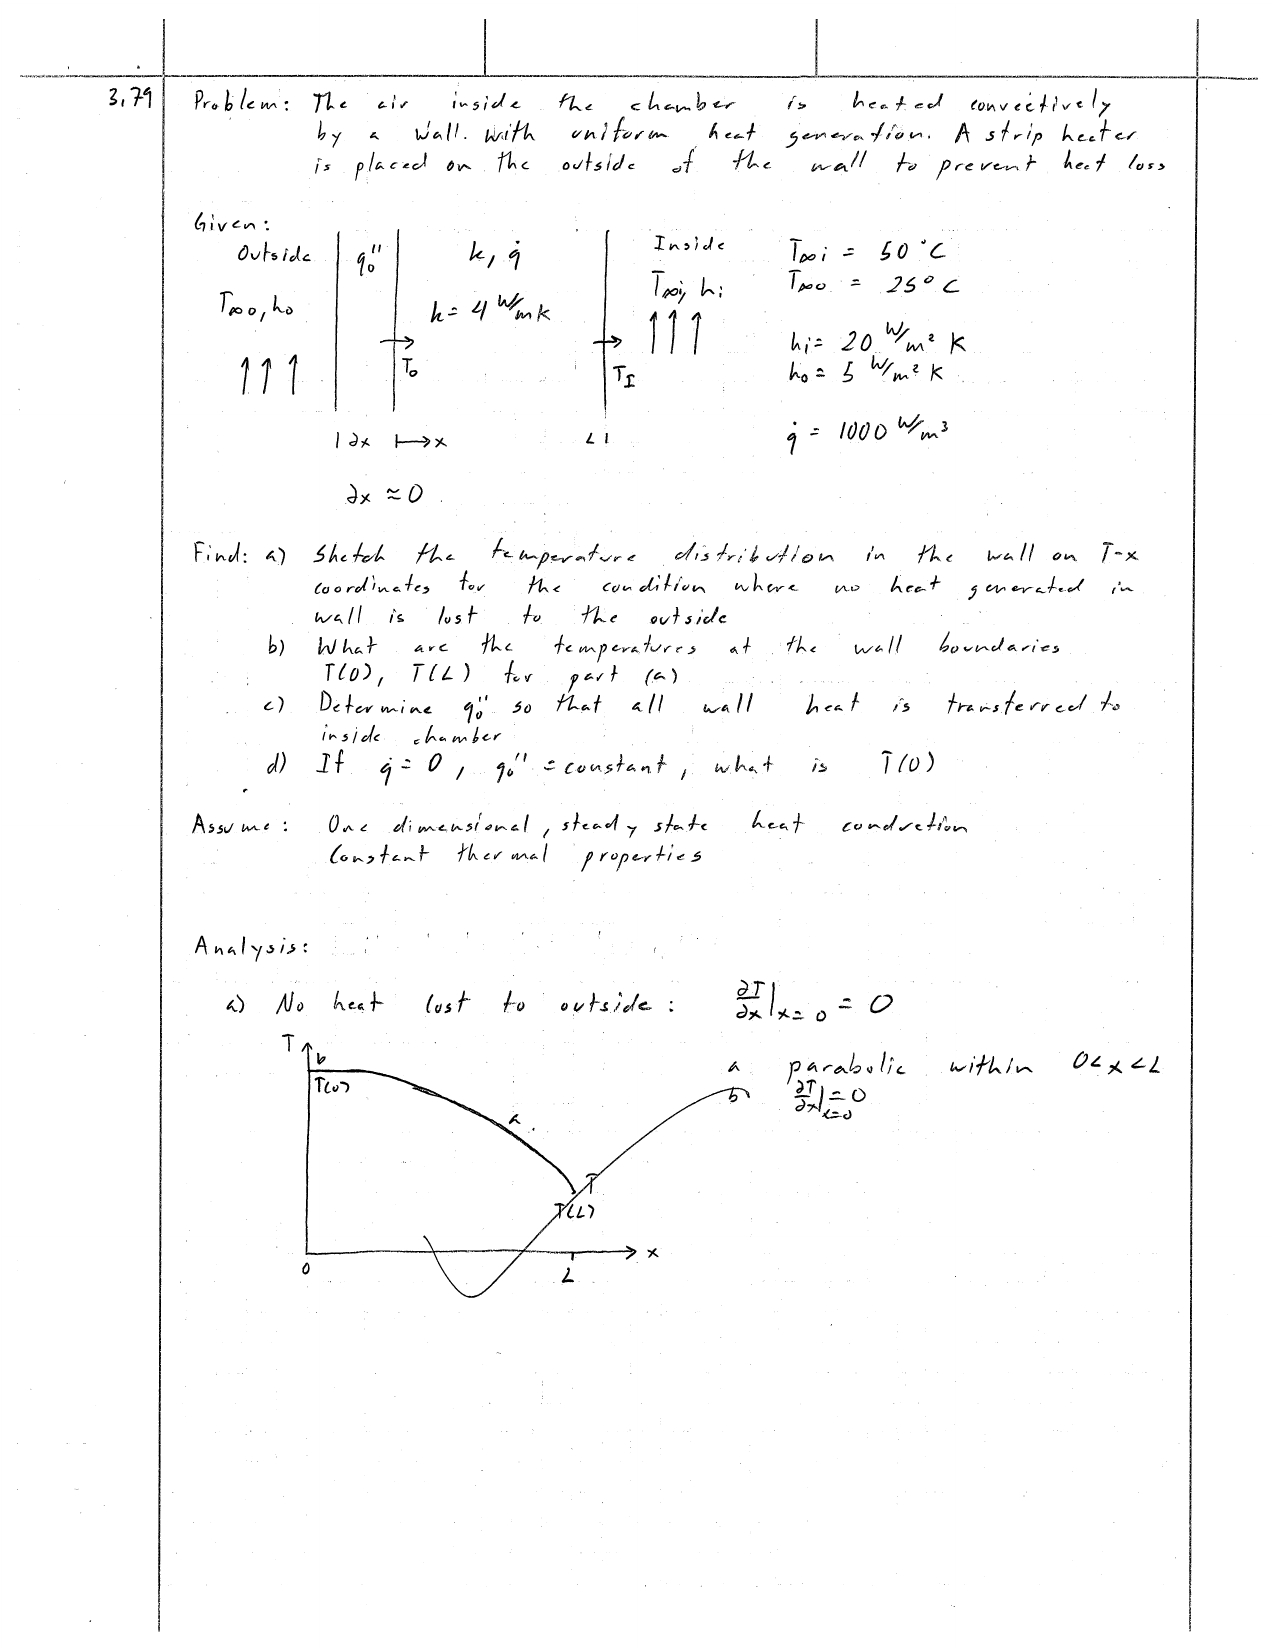 3,79
Problem: The air inside the chamber is heated convectively
by a wall. with uniform heat generation. A strip heater
is placed on the outside of the wall to prevent heat loss
Given:
Outside q₀'' k, q̇ Inside T∞i = 50 °C
T∞o, ho k = 4 W/mK T∞i, hi T∞o = 25° C
hi = 20 W/m² K
T₀ T_I ho = 5 W/m² K
| ∂x ↦ x L | q̇ = 1000 W/m³
∂x ≈ 0
Find: a) Sketch the temperature distribution in the wall on T-x
coordinates for the condition where no heat generated in
wall is lost to the outside
b) What are the temperatures at the wall boundaries
T(0), T(L) for part (a)
c) Determine q₀'' so that all wall heat is transferred to
inside chamber
d) If q̇ = 0, q₀'' = constant, what is T(0)
Assume: One dimensional, steady state heat conduction
Constant thermal properties
Analysis:
a) No heat lost to outside: ∂T/∂x|x=0 = 0
T b
T(0)
a
T
T(L)
0 L x
a parabolic within 0<x<L
b ∂T/∂x|x=0 = 0